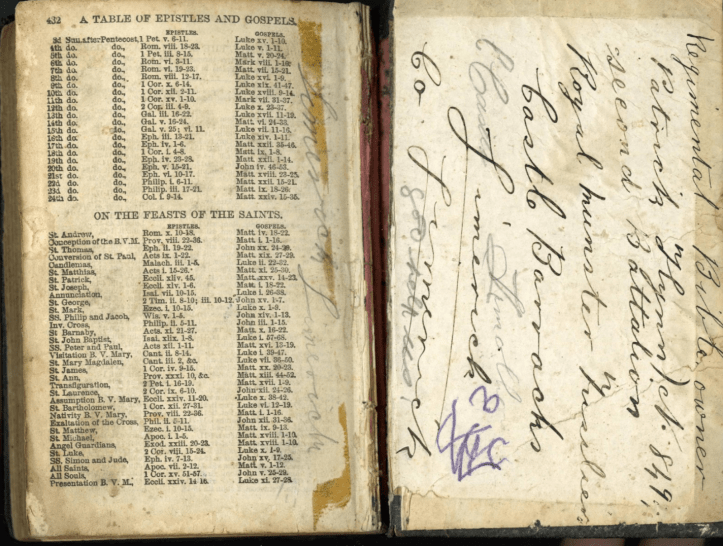 432 A TABLE OF EPISTLES AND GOSPELS.
EPISTLES. GOSPELS.
3d Sun. after Pentecost, 1 Pet. v. 6-11. Luke xv. 1-10.
4th do. do., Rom. viii. 18-23. Luke v. 1-11.
5th do. do., 1 Pet. iii. 8-15. Matt. v. 20-24.
6th do. do., Rom. vi. 3-11. Mark viii. 1-9.
7th do. do., Rom. vi. 19-23. Matt. vii. 15-21.
8th do. do., Rom. viii. 12-17. Luke xvi. 1-9.
9th do. do., 1 Cor. x. 6-14. Luke xix. 41-47.
10th do. do., 1 Cor. xii. 2-11. Luke xviii. 9-14.
11th do. do., 1 Cor. xv. 1-10. Mark vii. 31-37.
12th do. do., 2 Cor. iii. 4-9. Luke x. 23-37.
13th do. do., Gal. iii. 16-22. Luke xvii. 11-19.
14th do. do., Gal. v. 16-24. Matt. vi. 24-33.
15th do. do., Gal. v. 25; vi. 11. Luke vii. 11-16.
16th do. do., Eph. iii. 13-21. Luke xiv. 1-11.
17th do. do., Eph. iv. 1-6. Matt. xxii. 35-46.
18th do. do., 1 Cor. i. 4-8. Matt. ix. 1-8.
19th do. do., Eph. iv. 23-28. Matt. xxii. 1-14.
20th do. do., Eph. v. 15-21. John iv. 46-53.
21st do. do., Eph. vi. 10-17. Matt. xviii. 23-35.
22d do. do., Philip. i. 6-11. Matt. xxii. 15-21.
23d do. do., Philip. iii. 17-21. Matt. ix. 18-26.
24th do. do., Col. i. 9-14. Matt. xxiv. 15-35.
ON THE FEASTS OF THE SAINTS.
EPISTLES. GOSPELS.
St. Andrew, Rom. x. 10-18. Matt. iv. 18-22.
Conception of the B.V.M. Prov. viii. 22-36. Matt. i. 1-16.
St. Thomas, Eph. ii. 19-22. John xx. 24-29.
Conversion of St. Paul, Acts ix. 1-22. Matt. xix. 27-29.
Candlemas, Malach. iii. 1-5. Luke ii. 22-32.
St. Matthias, Acts i. 15-26. Matt. xi. 25-30.
St. Patrick, Eccli. xliv. 45. Matt. xxv. 14-23.
St. Joseph, Eccli. xlv. 1-6. Matt. i. 18-22.
Annunciation, Isai. vii. 10-15. Luke i. 26-38.
St. George, 2 Tim. ii. 8-10; iii. 10-12. John xv. 1-7.
St. Mark, Ezec. i. 10-15. Luke x. 1-9.
SS. Philip and Jacob, Wis. v. 1-5. John xiv. 1-13.
Inv. Cross, Philip. ii. 5-11. John iii. 1-15.
St Barnaby, Acts xi. 21-27. Matt. x. 16-22.
St. John Baptist, Isai. xlix. 1-8. Luke i. 57-68.
SS. Peter and Paul, Acts xii. 1-11. Matt. xvi. 13-19.
Visitation B. V. Mary, Cant. ii. 8-14. Luke i. 39-47.
St. Mary Magdalen, Cant. iii. 2, &c. Luke vii. 36-50.
St. James, 1 Cor. iv. 9-15. Matt. xx. 20-23.
St. Ann, Prov. xxxi. 10, &c. Matt. xiii. 44-52.
Transfiguration, 2 Pet i. 16-19. Matt. xvii. 1-9.
St. Laurence, 2 Cor. ix. 6-10. John xii. 24-26.
Assumption B. V. Mary, Eccli. xxiv. 11-20. Luke x. 38-42.
St. Bartholomew, 1 Cor. xii. 27-31. Luke vi. 12-19.
Nativity B. V. Mary, Prov. viii. 22-36. Matt. i. 1-16.
Exaltation of the Cross, Phil. ii. 5-11. John xii. 31-36.
St. Matthew, Ezec. i. 10-15. Matt. ix. 9-13.
St. Michael, Apoc. i. 1-5. Matt. xviii. 1-10.
Angel Guardians, Exod. xxiii. 20-23. Matt. xviii. 1-10.
St. Luke, 2 Cor. viii. 15-24. Luke x. 1-9.
SS. Simon and Jude, Eph. iv. 7-13. John xv. 17-25.
All Saints, Apoc. vii. 2-12. Matt. v. 1-12.
All Souls, 1 Cor. xv. 51-57. John v. 25-29.
Presentation B. V. M., Eccli. xxiv. 14-16. Luke xi. 27-28.
Limerick
Regimental owner
Patrick Flynn
Second Battalion
Royal Munst Fusiliers
Castle Barracks
Limerick
Co Limerick